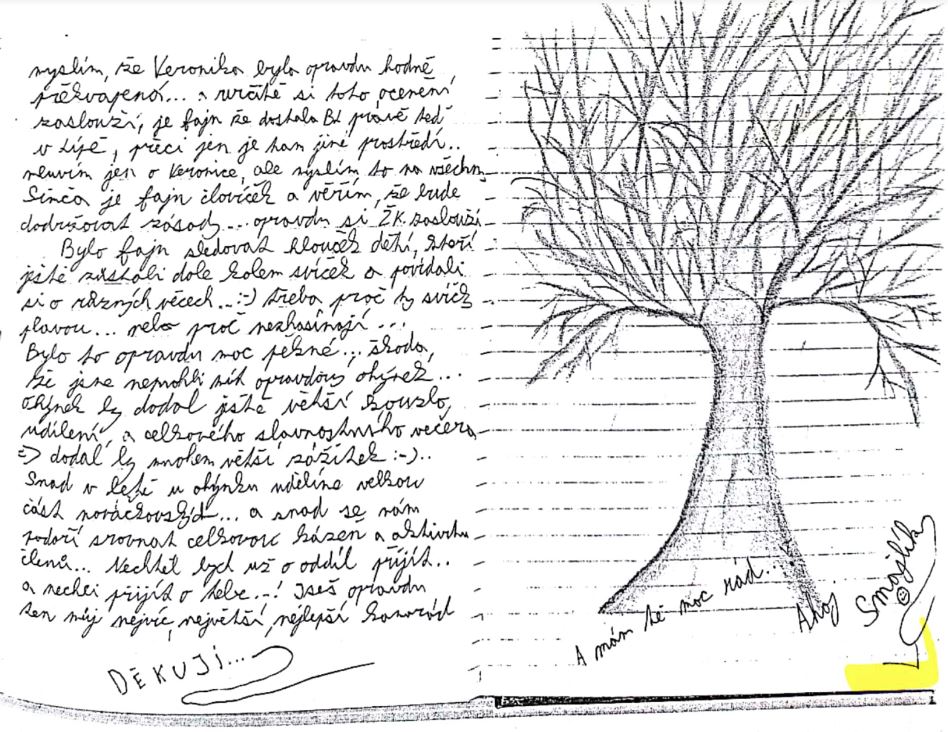 myslím, že Veronika byla opravdu hodně
překvapená... a určitě si toto ocenění
zaslouží, je fajn že dostala BL právě teď
v zipě, přeci jen je tam jiné prostředí..
nemluvím jen o Veronice, ale myslím to na všechny
Simča je fajn človíček a věřím, že bude
dodržovat zásady... opravdu si ŽK zaslouží.
Bylo fajn sledovat hlouček dětí, kteří
ještě zůstali dole kolem svíček a povídali
si o různých věcech...:-) třeba proč ty svíčky
plavou... nebo proč nezhasínají...
Bylo to opravdu moc pěkné... škoda,
že jsme nemohli mít opravdový ohýnek...
Ohýnek by dodal ještě větší kouzlo,
udílení, a celkového slavnostního večera
=> dodal by mnohem větší zážitek :-)..
Snad v létě u ohýnku udělíme velkou
část nováčkovských... a snad se nám
podaří srovnat celkovou kázeň a aktivitu
členů... Nechtěl bych už o oddíl přijít..
a nechci přijít o tebe...! Jseš opravdu
ten můj nejvíc, největší, nejlepší kamarád
DĚKUJI...
A mám tě moc rád...
Ahoj
Smajlík
1